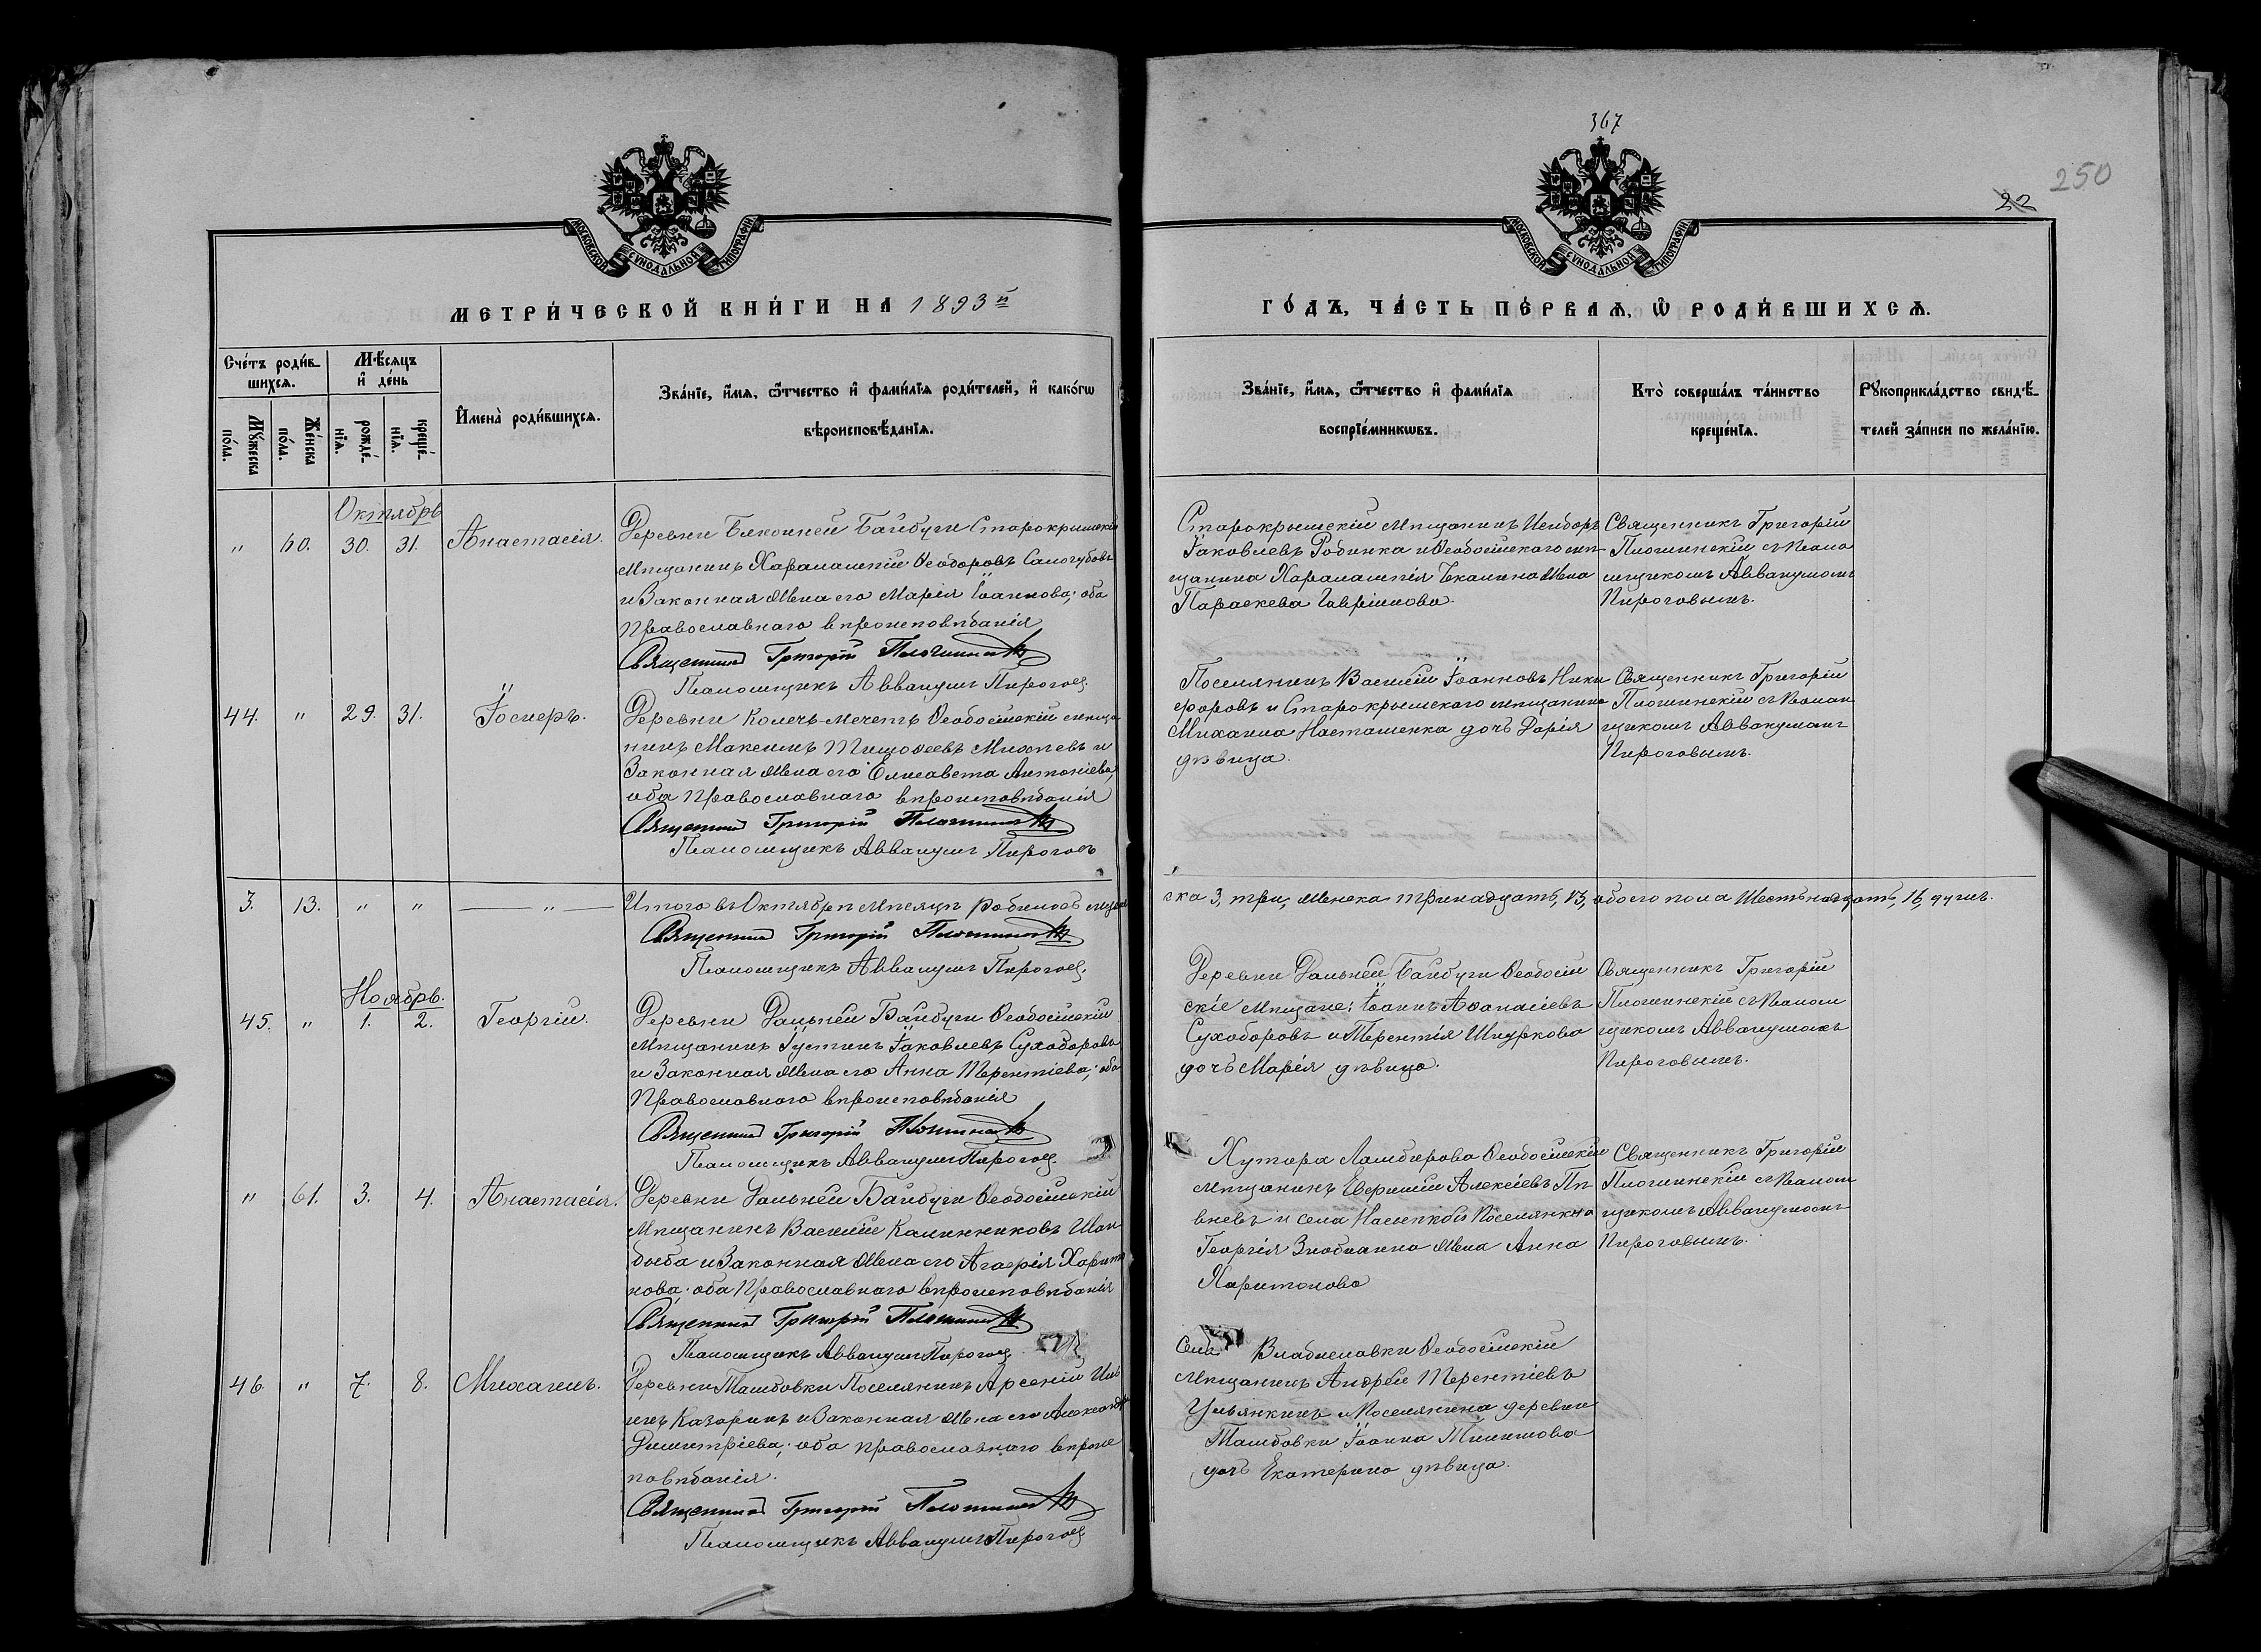 367
250
22
МОСКОВСКОЙ СѴНОДАЛЬНОЙ ТИПОГРАФІИ
МОСКОВСКОЙ СѴНОДАЛЬНОЙ ТИПОГРАФІИ
МЕТРИ́ЧЕСКОЙ КНИ́ГИ НА 1893й
ГО́ДЪ, ЧА́СТЬ ПЕ́РВАѦ, Ѡ҆ РОДИ́ВШИХСѦ.
Сче́тъ роди́в-
шихсѧ.
Мѣ́сѧцъ
и҆ де́нь
Мꙋ́жеска
по́ла.
Же́нска
по́ла.
рожде́-
нїѧ.
креще́-
нїѧ.
И҆мена̀ роди́вшихсѧ.
Зва́нїе, и҆́мѧ, ѻ҆́тчество и҆ фами́лїѧ роди́телей, и҆ како́гѡ
вѣроисповѣ́данїѧ.
Зва́нїе, и҆́мѧ, ѻ҆́тчество и҆ фами́лїѧ
воспрїе́мникѡвъ.
Кто̀ соверша́лъ та́инство
креще́нїѧ.
Рꙋкоприкла́дство свидѣ́-
телей за́писи по жела́нїю.
Октябрь
" 60. 30. 31. Анастасія.
Деревни Ближней Байбуги Старокрымскій
мѣщанинъ Харалампій Ѳеодоровъ Самогубовъ
и Законная Жена его Марія Іоаннова; оба
Православнаго вѣроисповѣданія
Священникъ Григорій
Псаломщикъ Аввакумъ Пироговъ
Старокрымскій мѣщанинъ
Іаковлевъ Родинка и Ѳеодосійскаго мѣ-
щанина Харалампія Жена
Параскева Гавріилова.
Священникъ Григорій
съ Псало
мщикомъ Аввакумомъ
Пироговымъ.
44. " 29. 31. Іосифъ.
Деревни Колечь-Мечеть Ѳеодосійскій мѣща
нинъ Максимъ Тимоѳеевъ Михѣевъ и
Законная Жена его Елисавета Антоніева,
оба Православнаго вѣроисповѣданія
Священникъ Григорій
Псаломщикъ Аввакумъ Пироговъ
Поселянинъ Василій Іоанновъ Ники
форовъ и Старокрымскаго мѣщанина
Михаила Насташенка дочь Дарія
дѣвица.
Священникъ Григорій
съ Псалом
щикомъ Аввакумомъ
Пироговымъ.
3. 13. " " — " —
Итого въ Октябрѣ мѣсяцѣ родилось муже
ска 3, три, женска тринадцать, 13, обоего пола Шестьнадцать, 16, душъ.
Священникъ Григорій
Псаломщикъ Аввакумъ Пироговъ
Ноябрь.
45. " 1. 2. Георгій.
Деревни Дальней Байбуги Ѳеодосійскій
мѣщанинъ Іустинъ Іаковлевъ Суходоровъ
и Законная Жена его Анна Терентіева; оба
Православнаго вѣроисповѣданія
Священникъ Григорій
Псаломщикъ Аввакумъ Пироговъ
Деревни Дальней Байбуги Ѳеодосій
скіе мѣщане: Іоаннъ Аѳанасіевъ
Суходоровъ и Терентія Шнуркова
дочь Марія дѣвица.
Священникъ Григорій
съ Псалом
щикомъ Аввакумомъ
Пироговымъ.
" 61. 3. 4. Анастасія.
Деревни Дальней Байбуги Ѳеодосійскій
Мѣщанинъ Василій Калинниковъ Шан
дыба и Законная Жена его Агафія Харито
нова; оба Православнаго вѣроисповѣданія
Священникъ Григорій
Псаломщикъ Аввакумъ Пироговъ
Хутора Ламбирова Ѳеодосійскій
мѣщанинъ Алексіевъ Пѣ-
вневъ и села Насыпкой Поселянина
Георгія Жена Анна
Харитонова
Священникъ Григорій
съ Псалом
щикомъ Аввакумомъ
Пироговымъ.
46. " 7. 8. Михаилъ.
Деревни Тамбовки Поселянинъ Арсеній Иль
инъ Казаринъ и Законная Жена его Александра
Димитріева; оба православнаго вѣроис
повѣданія.
Священникъ Григорій
Псаломщикъ Аввакумъ Пироговъ
Села Владиславки Ѳеодосійскій
Мѣщанинъ Андрей Терентіевъ
Ульянкинъ и Поселянина деревни
Тамбовки Іоанна
дочь Екатерина дѣвица.